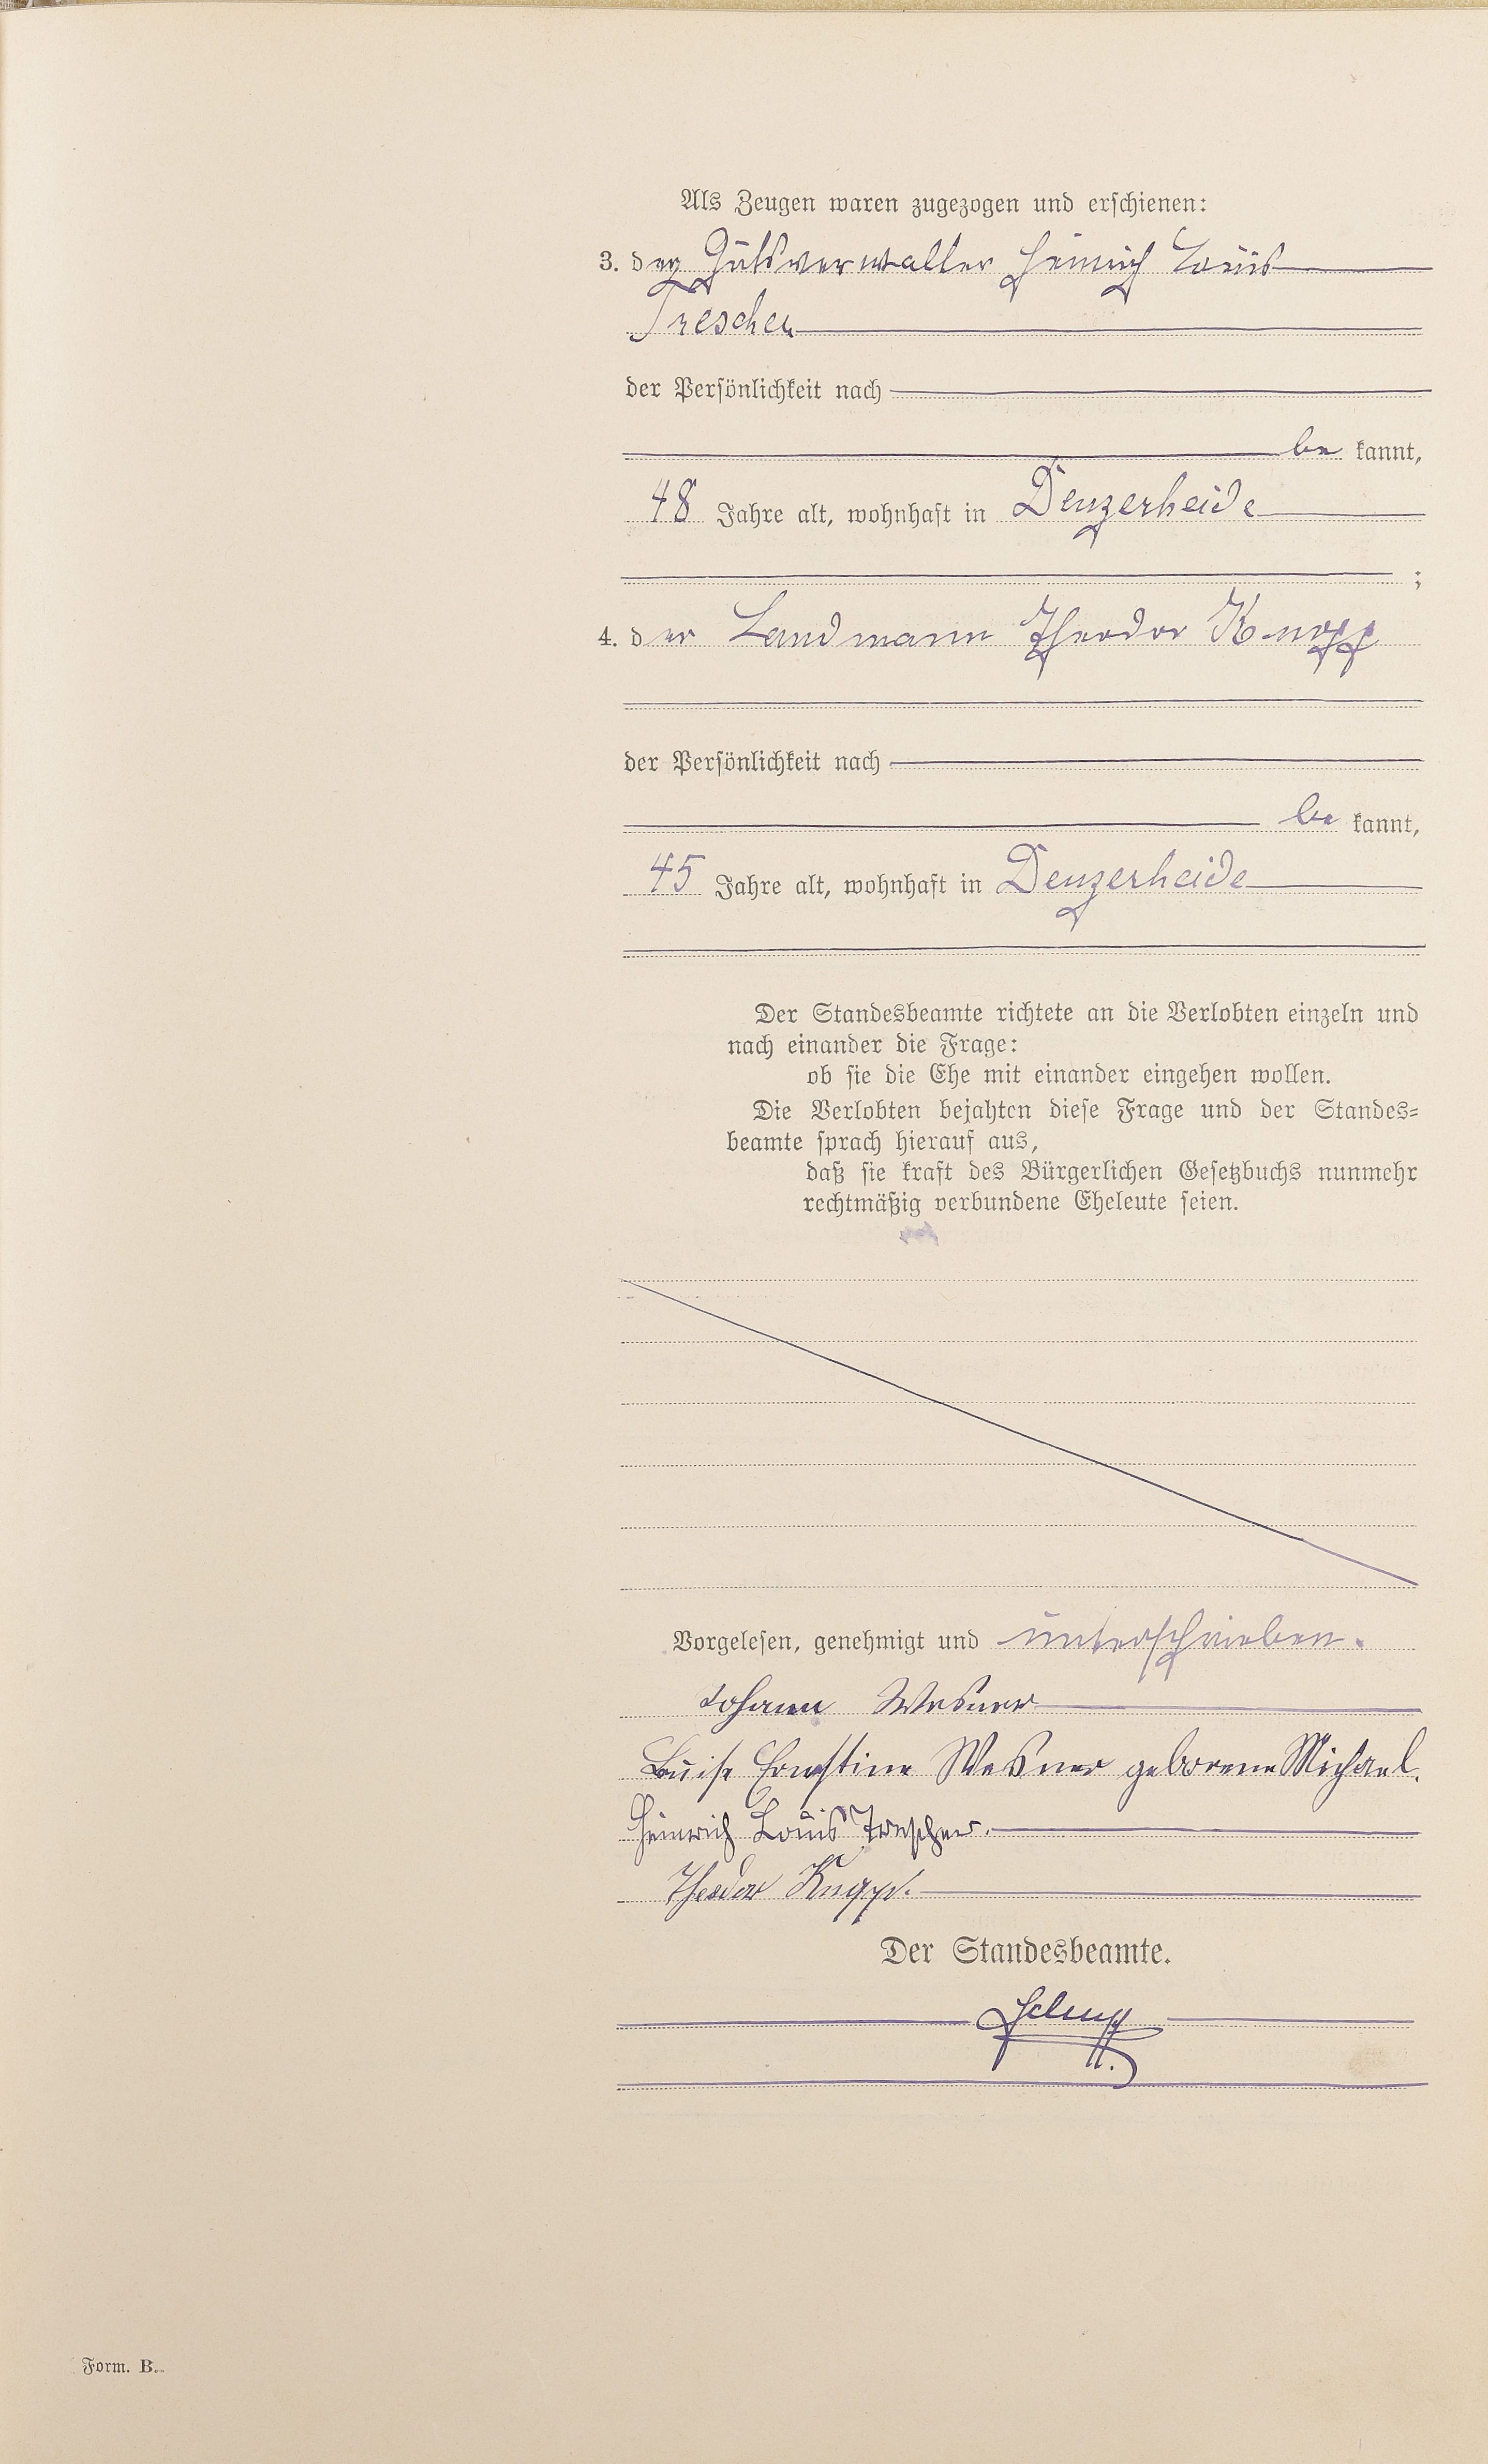 Als Zeugen waren zugezogen und erschienen:
3. der Gutsverwalter Heinrich Louis
Trescher
der Persönlichkeit nach
be kannt,
48 Jahre alt, wohnhaft in Denzerheide
;
4. der Landmann Theodor Knopp
der Persönlichkeit nach
be kannt,
45 Jahre alt, wohnhaft in Denzerheide
Der Standesbeamte richtete an die Verlobten einzeln und
nach einander die Frage:
ob sie die Ehe mit einander eingehen wollen.
Die Verlobten bejahten diese Frage und der Standes=
beamte sprach hierauf aus,
daß sie kraft des Bürgerlichen Gesetzbuchs nunmehr
rechtmäßig verbundene Eheleute seien.
Vorgelesen, genehmigt und unterschrieben.
Johann Wesner
Luise Ernstine Wesner geborene Michael.
Heinrich Louis Trescher.
Theodor Knopp.
Der Standesbeamte.
Form. B.